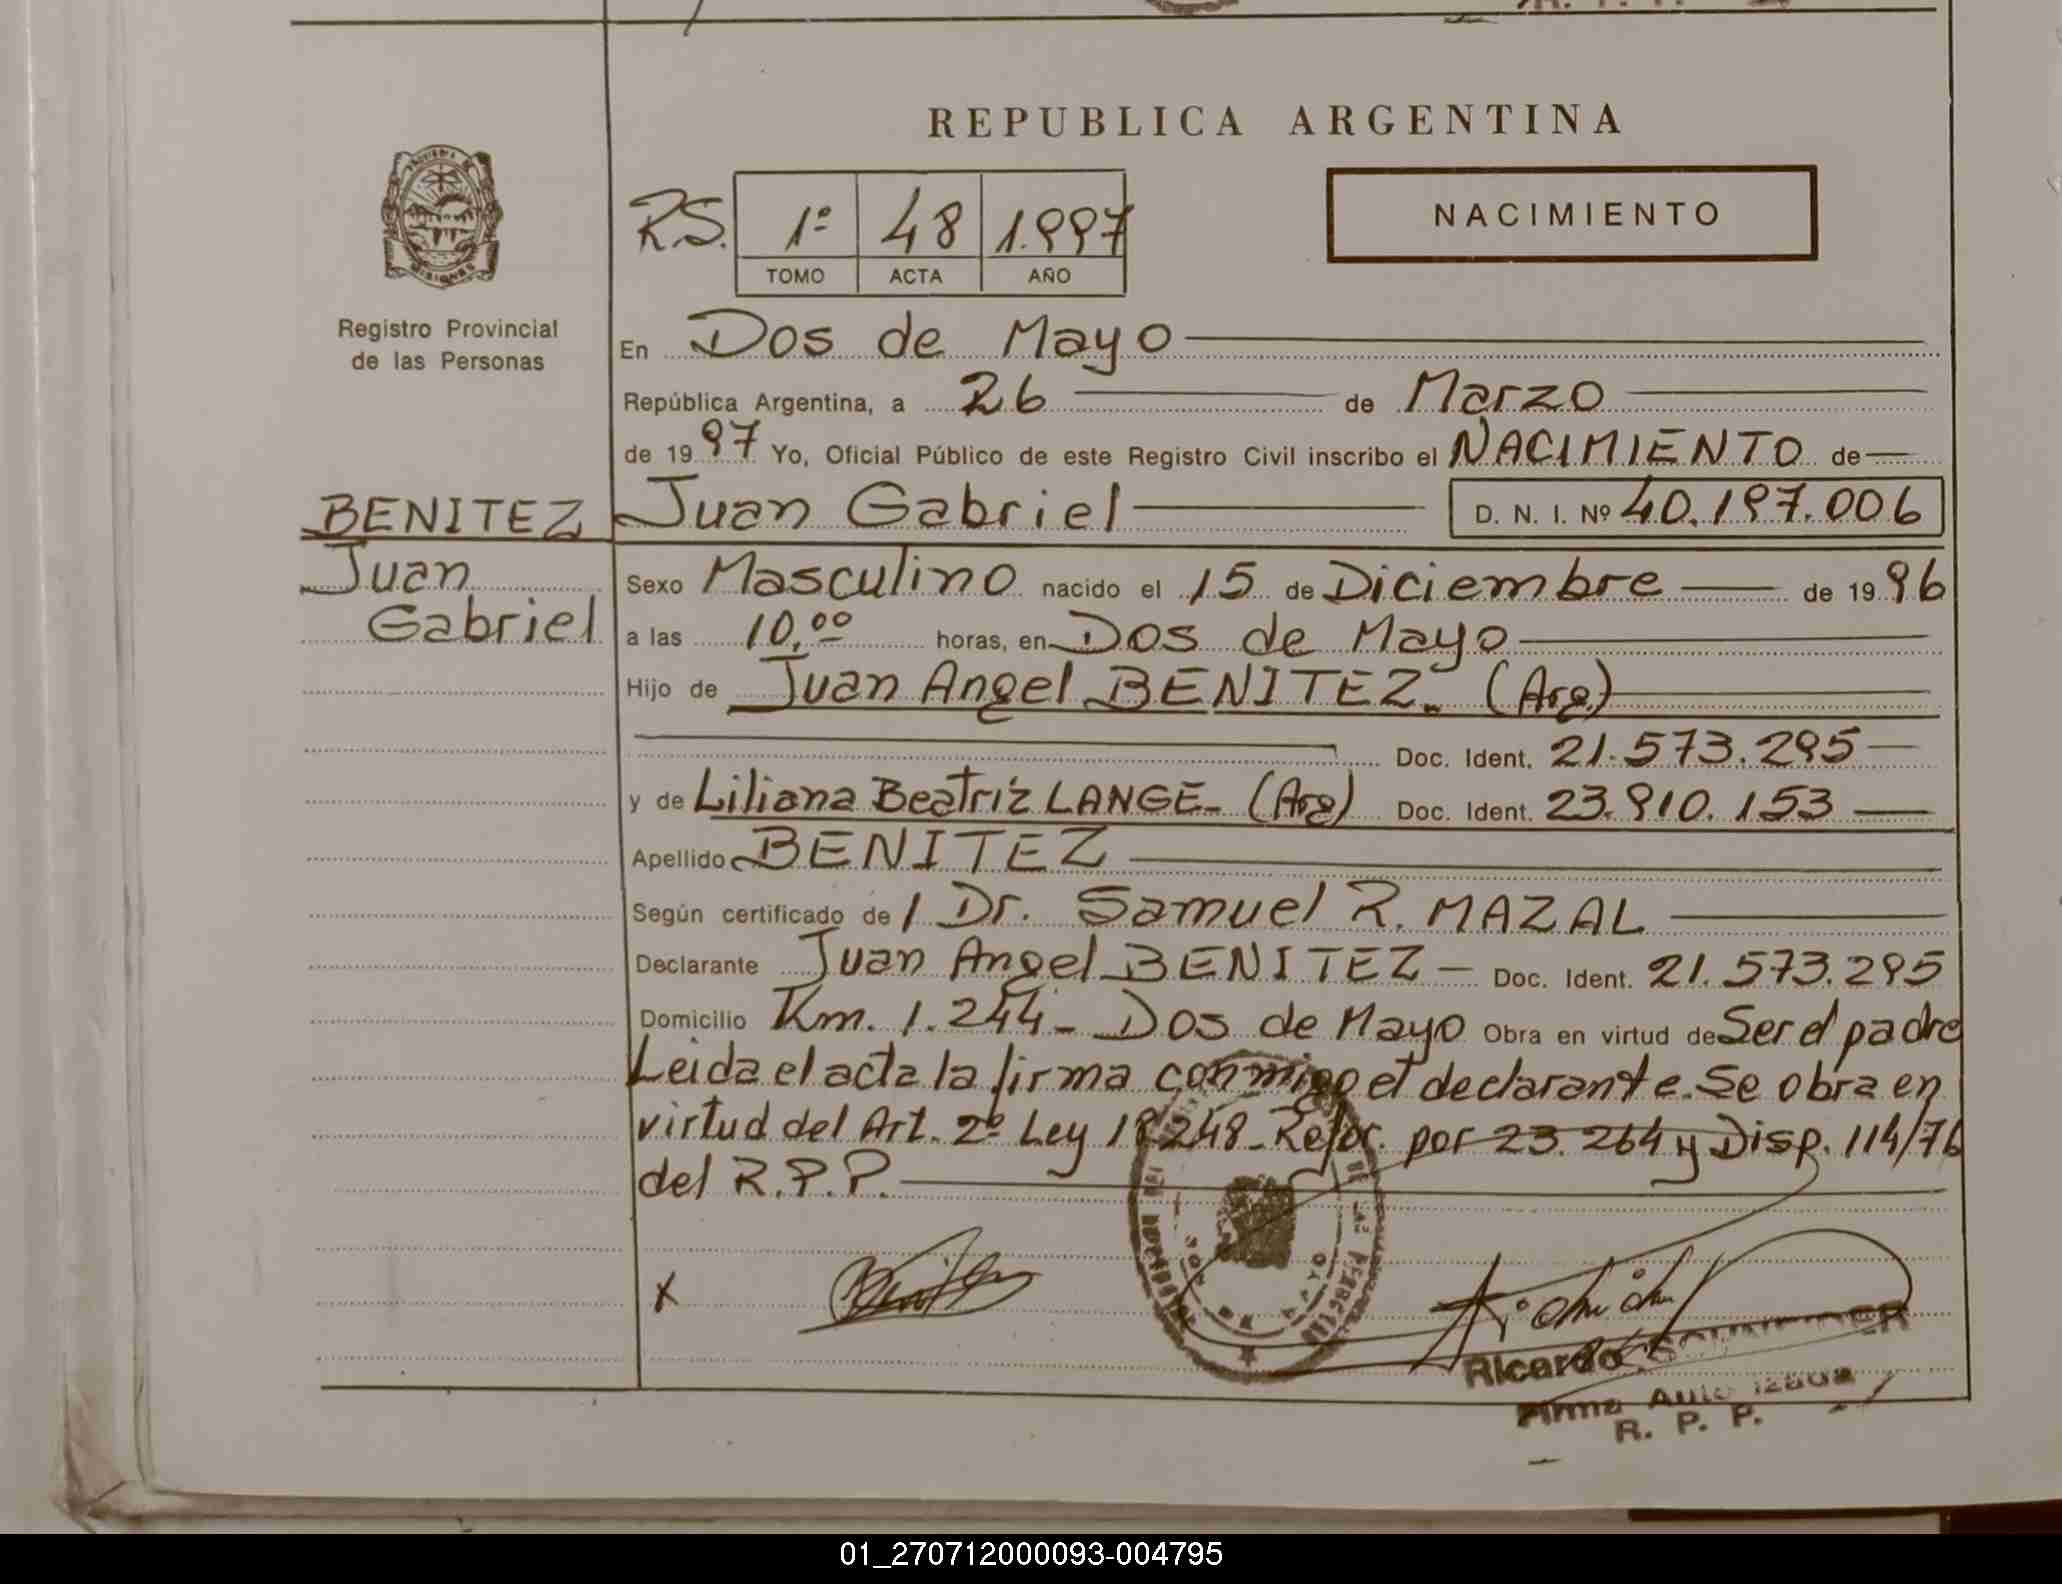 REPUBLICA ARGENTINA
R.S. 1º 48 1.997
TOMO ACTA AÑO
NACIMIENTO
Registro Provincial
de las Personas
En Dos de Mayo
República Argentina, a 26 de Marzo
de 1997 Yo, Oficial Público de este Registro Civil inscribo el NACIMIENTO de
BENITEZ Juan Gabriel D. N. I. Nº 40.197.006
Juan
Gabriel
Sexo Masculino nacido el 15 de Diciembre de 1996
a las 10,00 horas, en Dos de Mayo
Hijo de Juan Angel BENITEZ. (Arg.)
Doc. Ident. 21.573.295
y de Liliana Beatriz LANGE- (Arg) Doc. Ident. 23.910.153
Apellido BENITEZ
Según certificado de / Dr. Samuel R. MAZAL
Declarante Juan Angel BENITEZ - Doc. Ident. 21.573.295
Domicilio Km. 1.244- Dos de Mayo Obra en virtud de Ser el padre
Leida el acta la firma conmigo el declarante. Se obra en
virtud del Art. 2º Ley 18.248- Refor. por 23.264 y Disp. 114/76
del R.P.P.
X
Ricardo SCHNEIDER
Firma Autorizada
R. P. P.
01_270712000093-004795